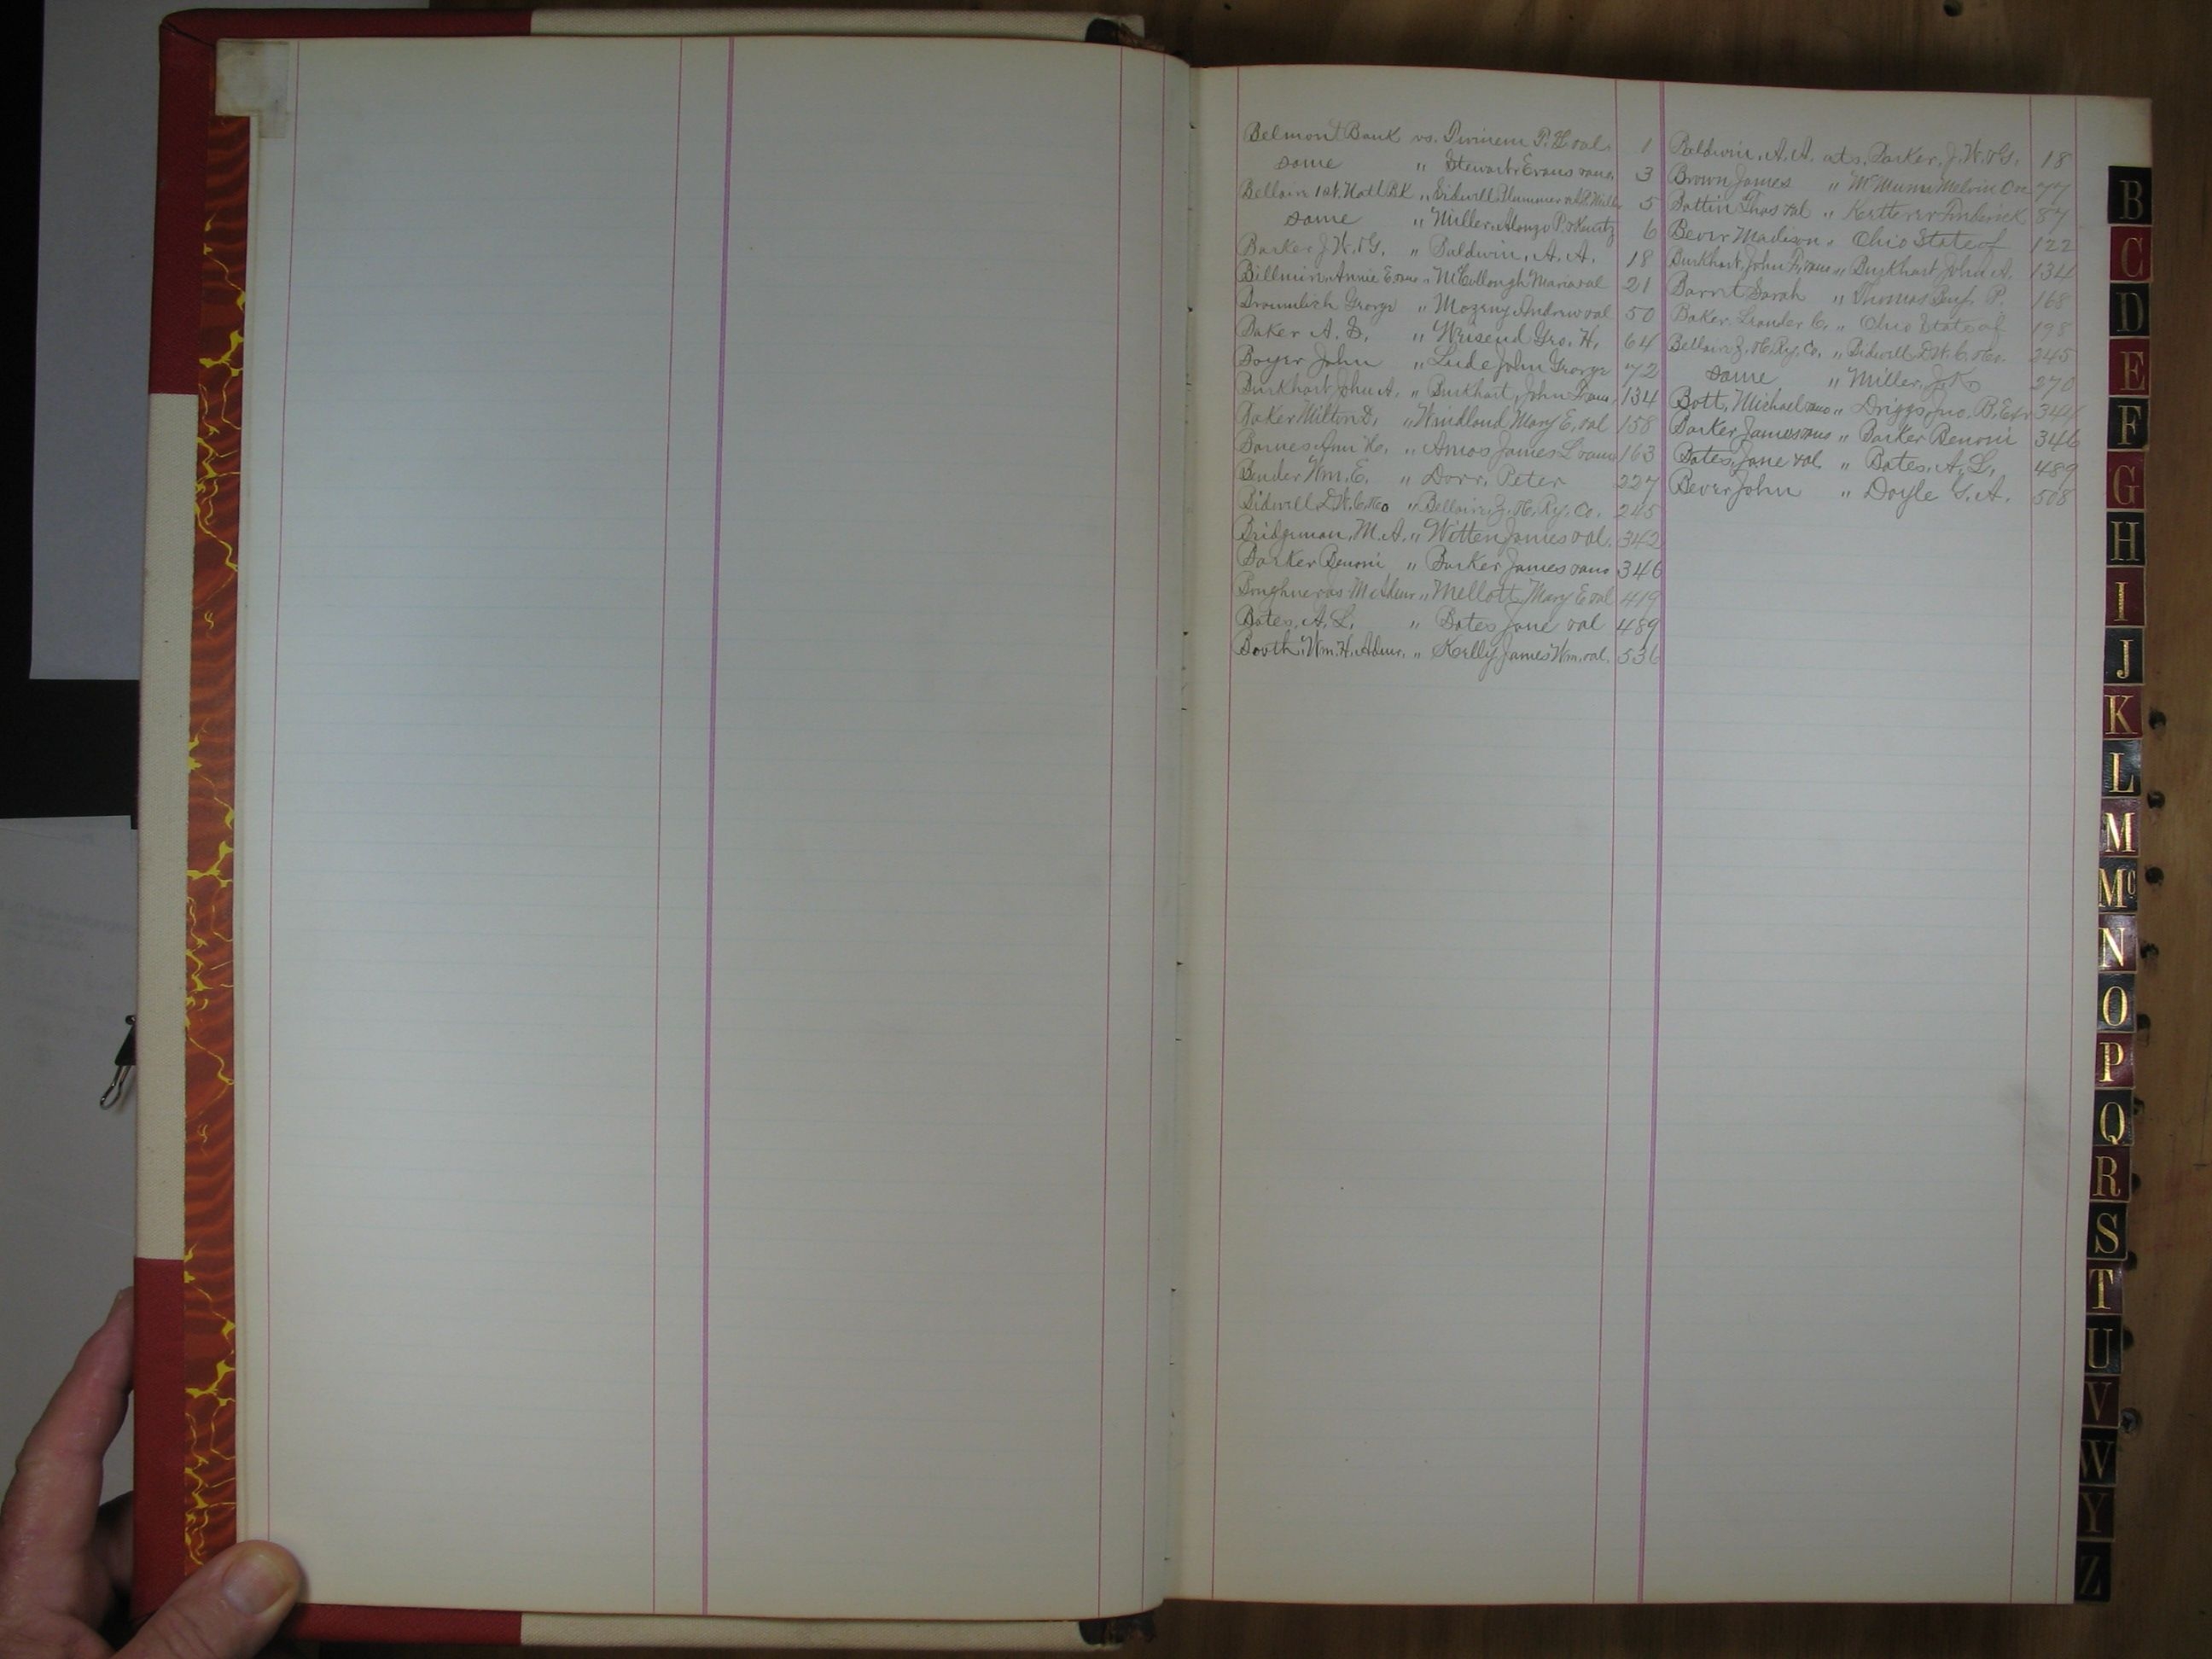 Belmont Bank vs. Twinem T. H. et al. 1
same " Stewart, Evans et ano. 3
Bellaire 1st. Natl. Bk. " Sidwell Plummer 5
same " Miller, Alonzo P. & Kurtz 6
Barker J. W. & G. " Baldwin, A. A. 18
Billmin, Annie E et ano " McCullough Maria et al 21
George " Mozeny Andrew et al 50
Baker A. B. " Weisend Geo. H. 64
Boyer John " Lude John George 72
Burkhart John A. " Burkhart, John F. et ano. 134
Baker Milton D. " Windland Mary E. et al 158
Barnes Ann " Amos James L et ano 163
Bender Wm. E. " Dorr, Peter 227
Bidwell D. W. C. & Co " Bellaire Z. & C. Ry. Co. 245
Bridgeman, M. A. " Witten James et al. 342
Barker Benoni " Barker James et ano 346
Admr " Mellott Mary E et al 419
Bates, A. L. " Bates Jane et al 489
Booth, Wm. H. Admr. " Kelly James Wm. et al. 536
Baldwin, A. A. ats. Barker, J. W. & G. 18
Brown James " McMunn Melvin 77
Battin Thos et al " Ketterer Frederick 87
Bever Madison " Ohio State of 122
Burkhart, John F. et ano " Burkhart John A. 134
Barnt Sarah " Thomas Benj. P. 168
Baker Leander C. " Ohio State of 198
Bellaire Z. & C. Ry. Co. " Bidwell D. W. C. & Co. 245
same " Miller, 270
Bott, Michael et ano " Driggs, Jno. B. Exr 344
Barker James et ano " Barker Benoni 346
Bates, Jane et al " Bates, A. L. 489
Bever John " Doyle G. A. 508
B
C
D
E
F
G
H
I
J
K
L
M
Mc
N
O
P
Q
R
S
T
U
V
W
Y
Z